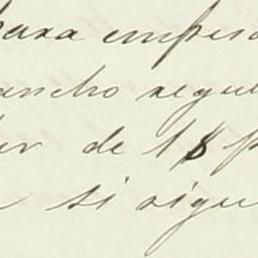 para empesa
ancho regul
er de 18 p
si sigue